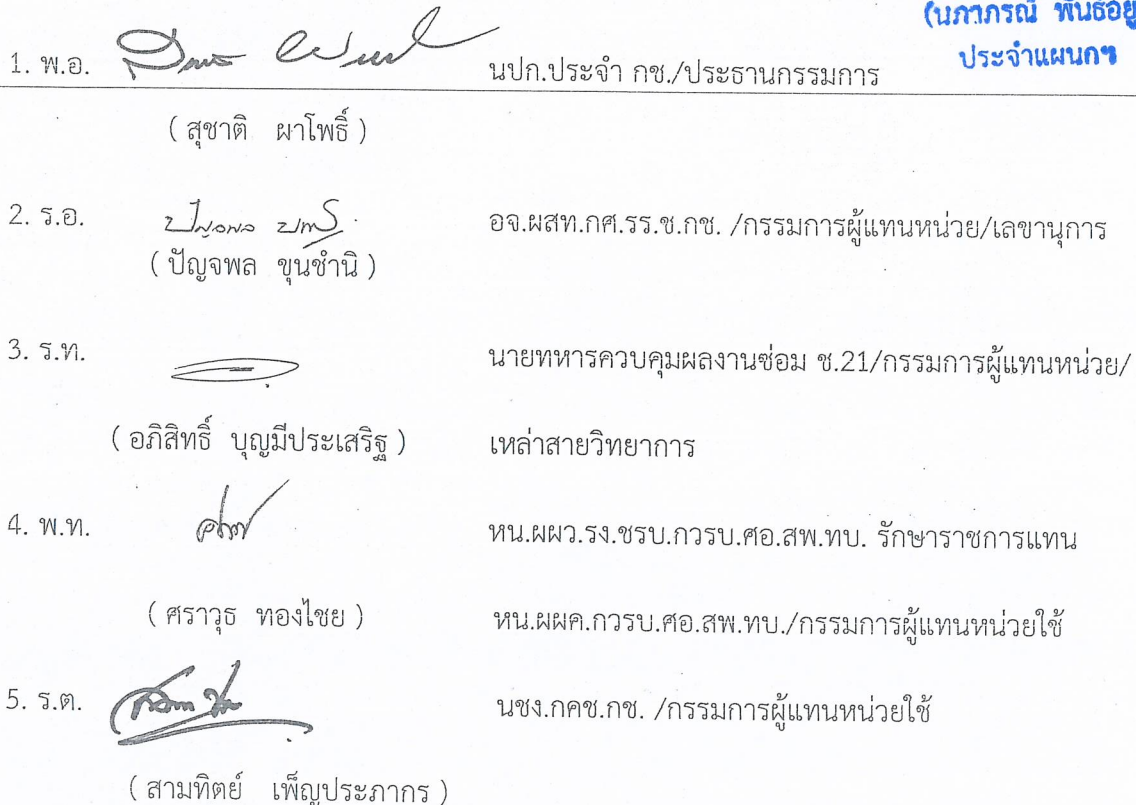 (นภาภรณ์ พันธ์อยู่
ประจำแผนกฯ
1. พ.อ. นปก.ประจำ กช./ประธานกรรมการ
( สุชาติ ผาโพธิ์ )
2. ร.อ. ปัญจพล อจ.ผสท.กศ.รร.ช.กช. /กรรมการผู้แทนหน่วย/เลขานุการ
( ปัญจพล ขุนชำนิ )
3. ร.ท. นายทหารควบคุมผลงานซ่อม ช.21/กรรมการผู้แทนหน่วย/
( อภิสิทธิ์ บุญมีประเสริฐ ) เหล่าสายวิทยาการ
4. พ.ท. หน.ผผว.รง.ชรบ.กวรบ.ศอ.สพ.ทบ. รักษาราชการแทน
( ศราวุธ ทองไชย ) หน.ผผค.กวรบ.ศอ.สพ.ทบ./กรรมการผู้แทนหน่วยใช้
5. ร.ต. นชง.กคช.กช. /กรรมการผู้แทนหน่วยใช้
( สามทิตย์ เพ็ญประภากร )